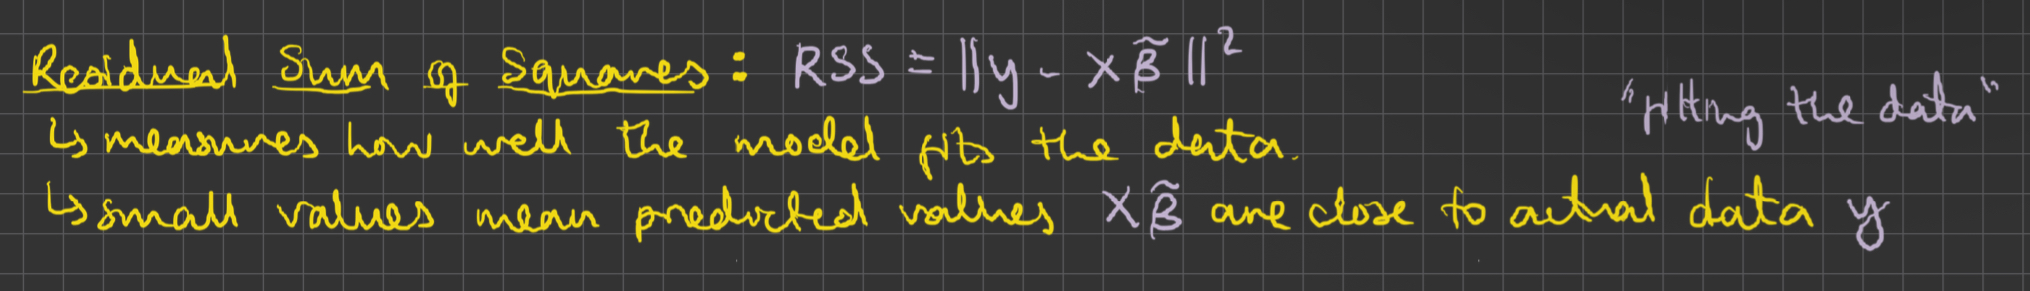 Residual Sum of Squares: RSS = ||y - Xβ̃||²
"fitting the data"
↳ measures how well the model fits the data.
↳ small values mean predicted values Xβ̃ are close to actual data y